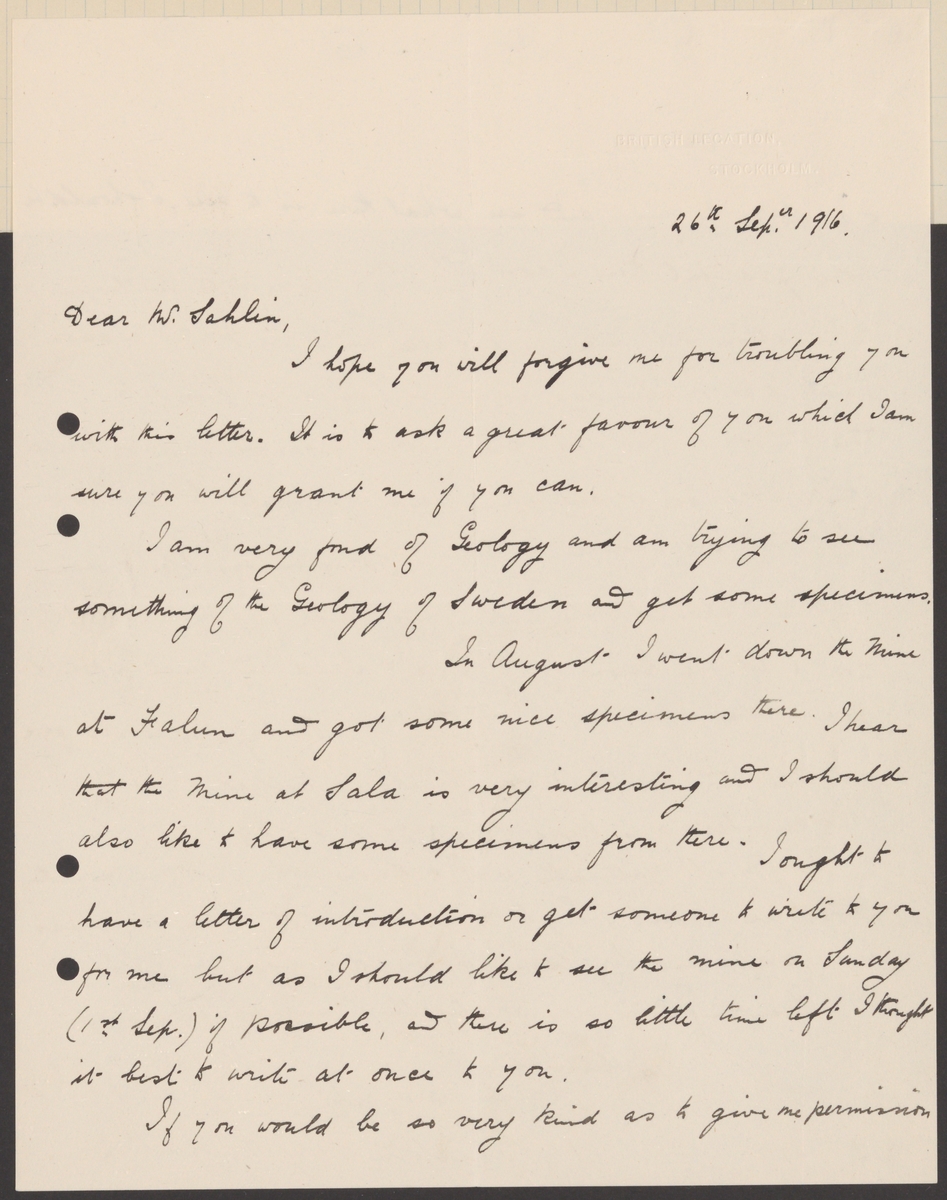 BRITISH LEGATION
STOCKHOLM.
26th Sep.er 1916.
Dear Mr. Sahlin,
I hope you will forgive me for troubling you
with this letter. It is to ask a great favour of you which I am
sure you will grant me if you can.
I am very fond of Geology and am trying to see
something of the Geology of Sweden and get some specimens.
In August I went down the Mine
at Falun and got some nice specimens there. I hear
that the Mine at Sala is very interesting and I should
also like to have some specimens from there. I ought to
have a letter of introduction or get someone to write to you
for me but as I should like to see the mine on Sunday
(1st Sep.) if possible, and there is so little time left I thought
it best to write at once to you.
If you would be so very kind as to give me permission